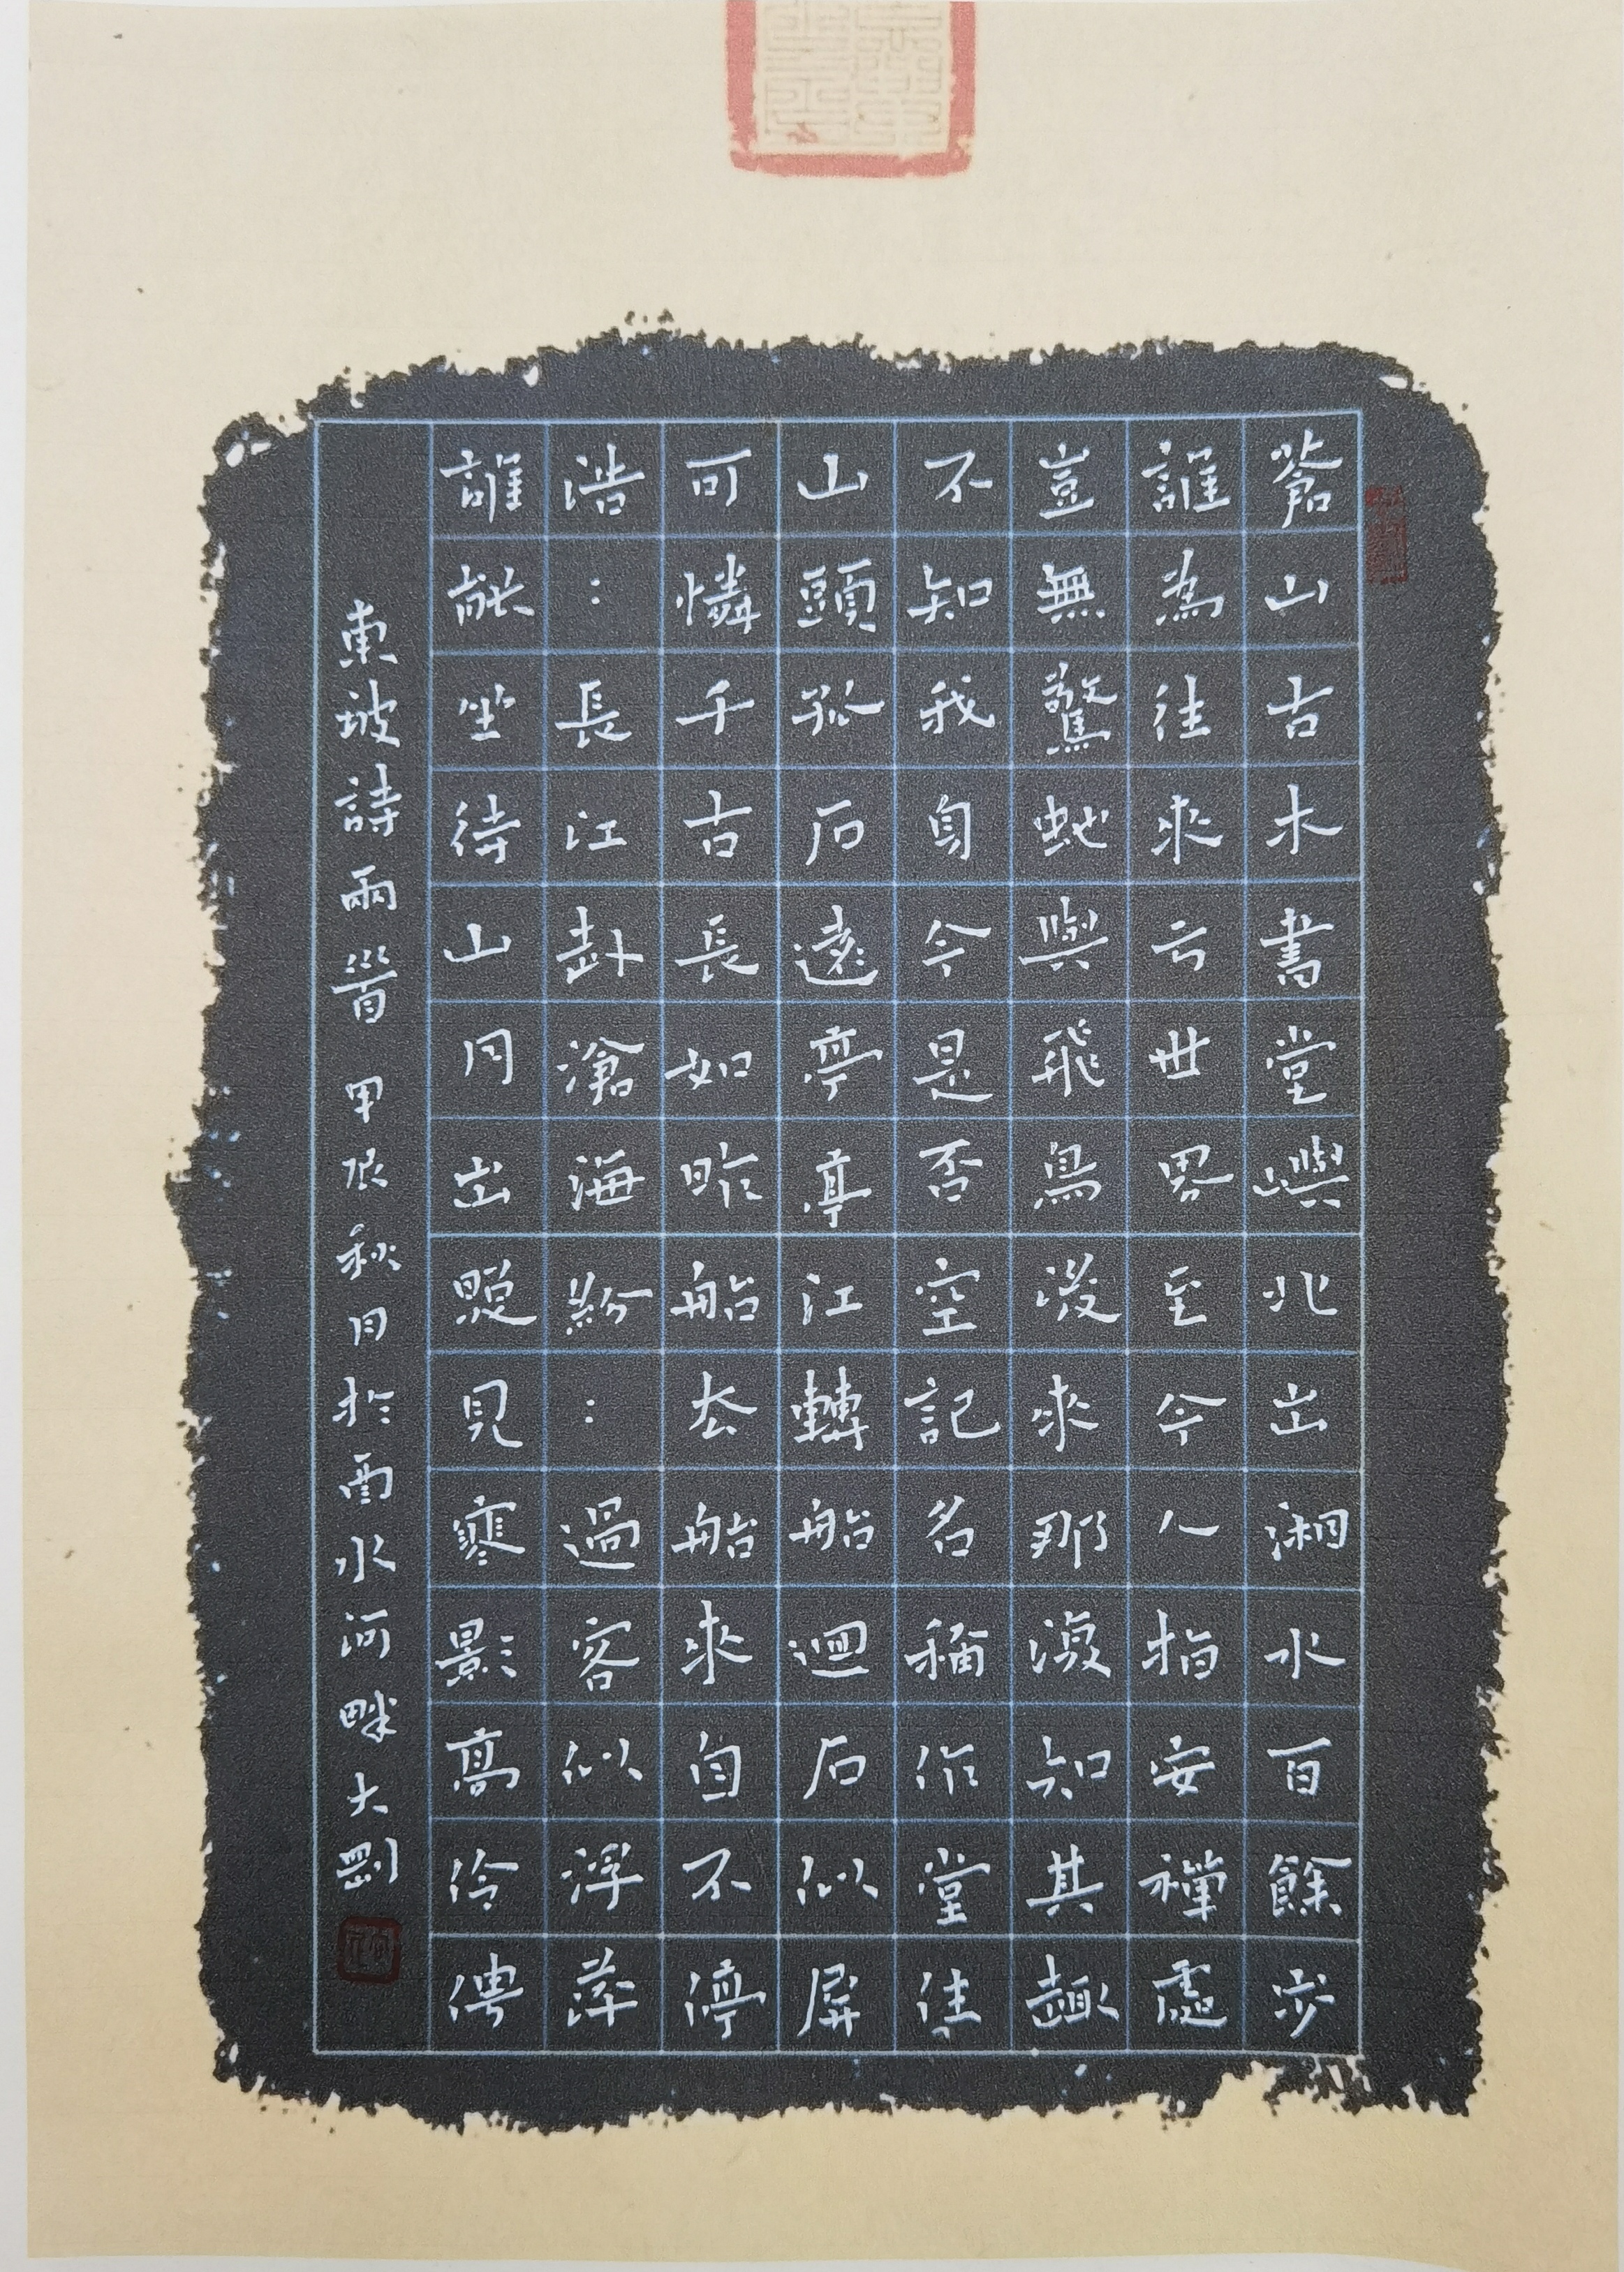 蒼山古木書堂嶼北出湘水百餘步
誰為往來亏世界至今人指安禪處
豈無驚蛇與飛鳥後來那復知其趣
不知我身今是否空記名稱作堂住
山頭孤石遠亭亭江轉船迴石似屏
可憐千古長如昨船去船來自不停
浩:長江赴滄海紛:過客似浮萍
誰能坐待山月出照見寒影高伶俜
東坡詩兩首甲辰秋月於酉水河畔大劉